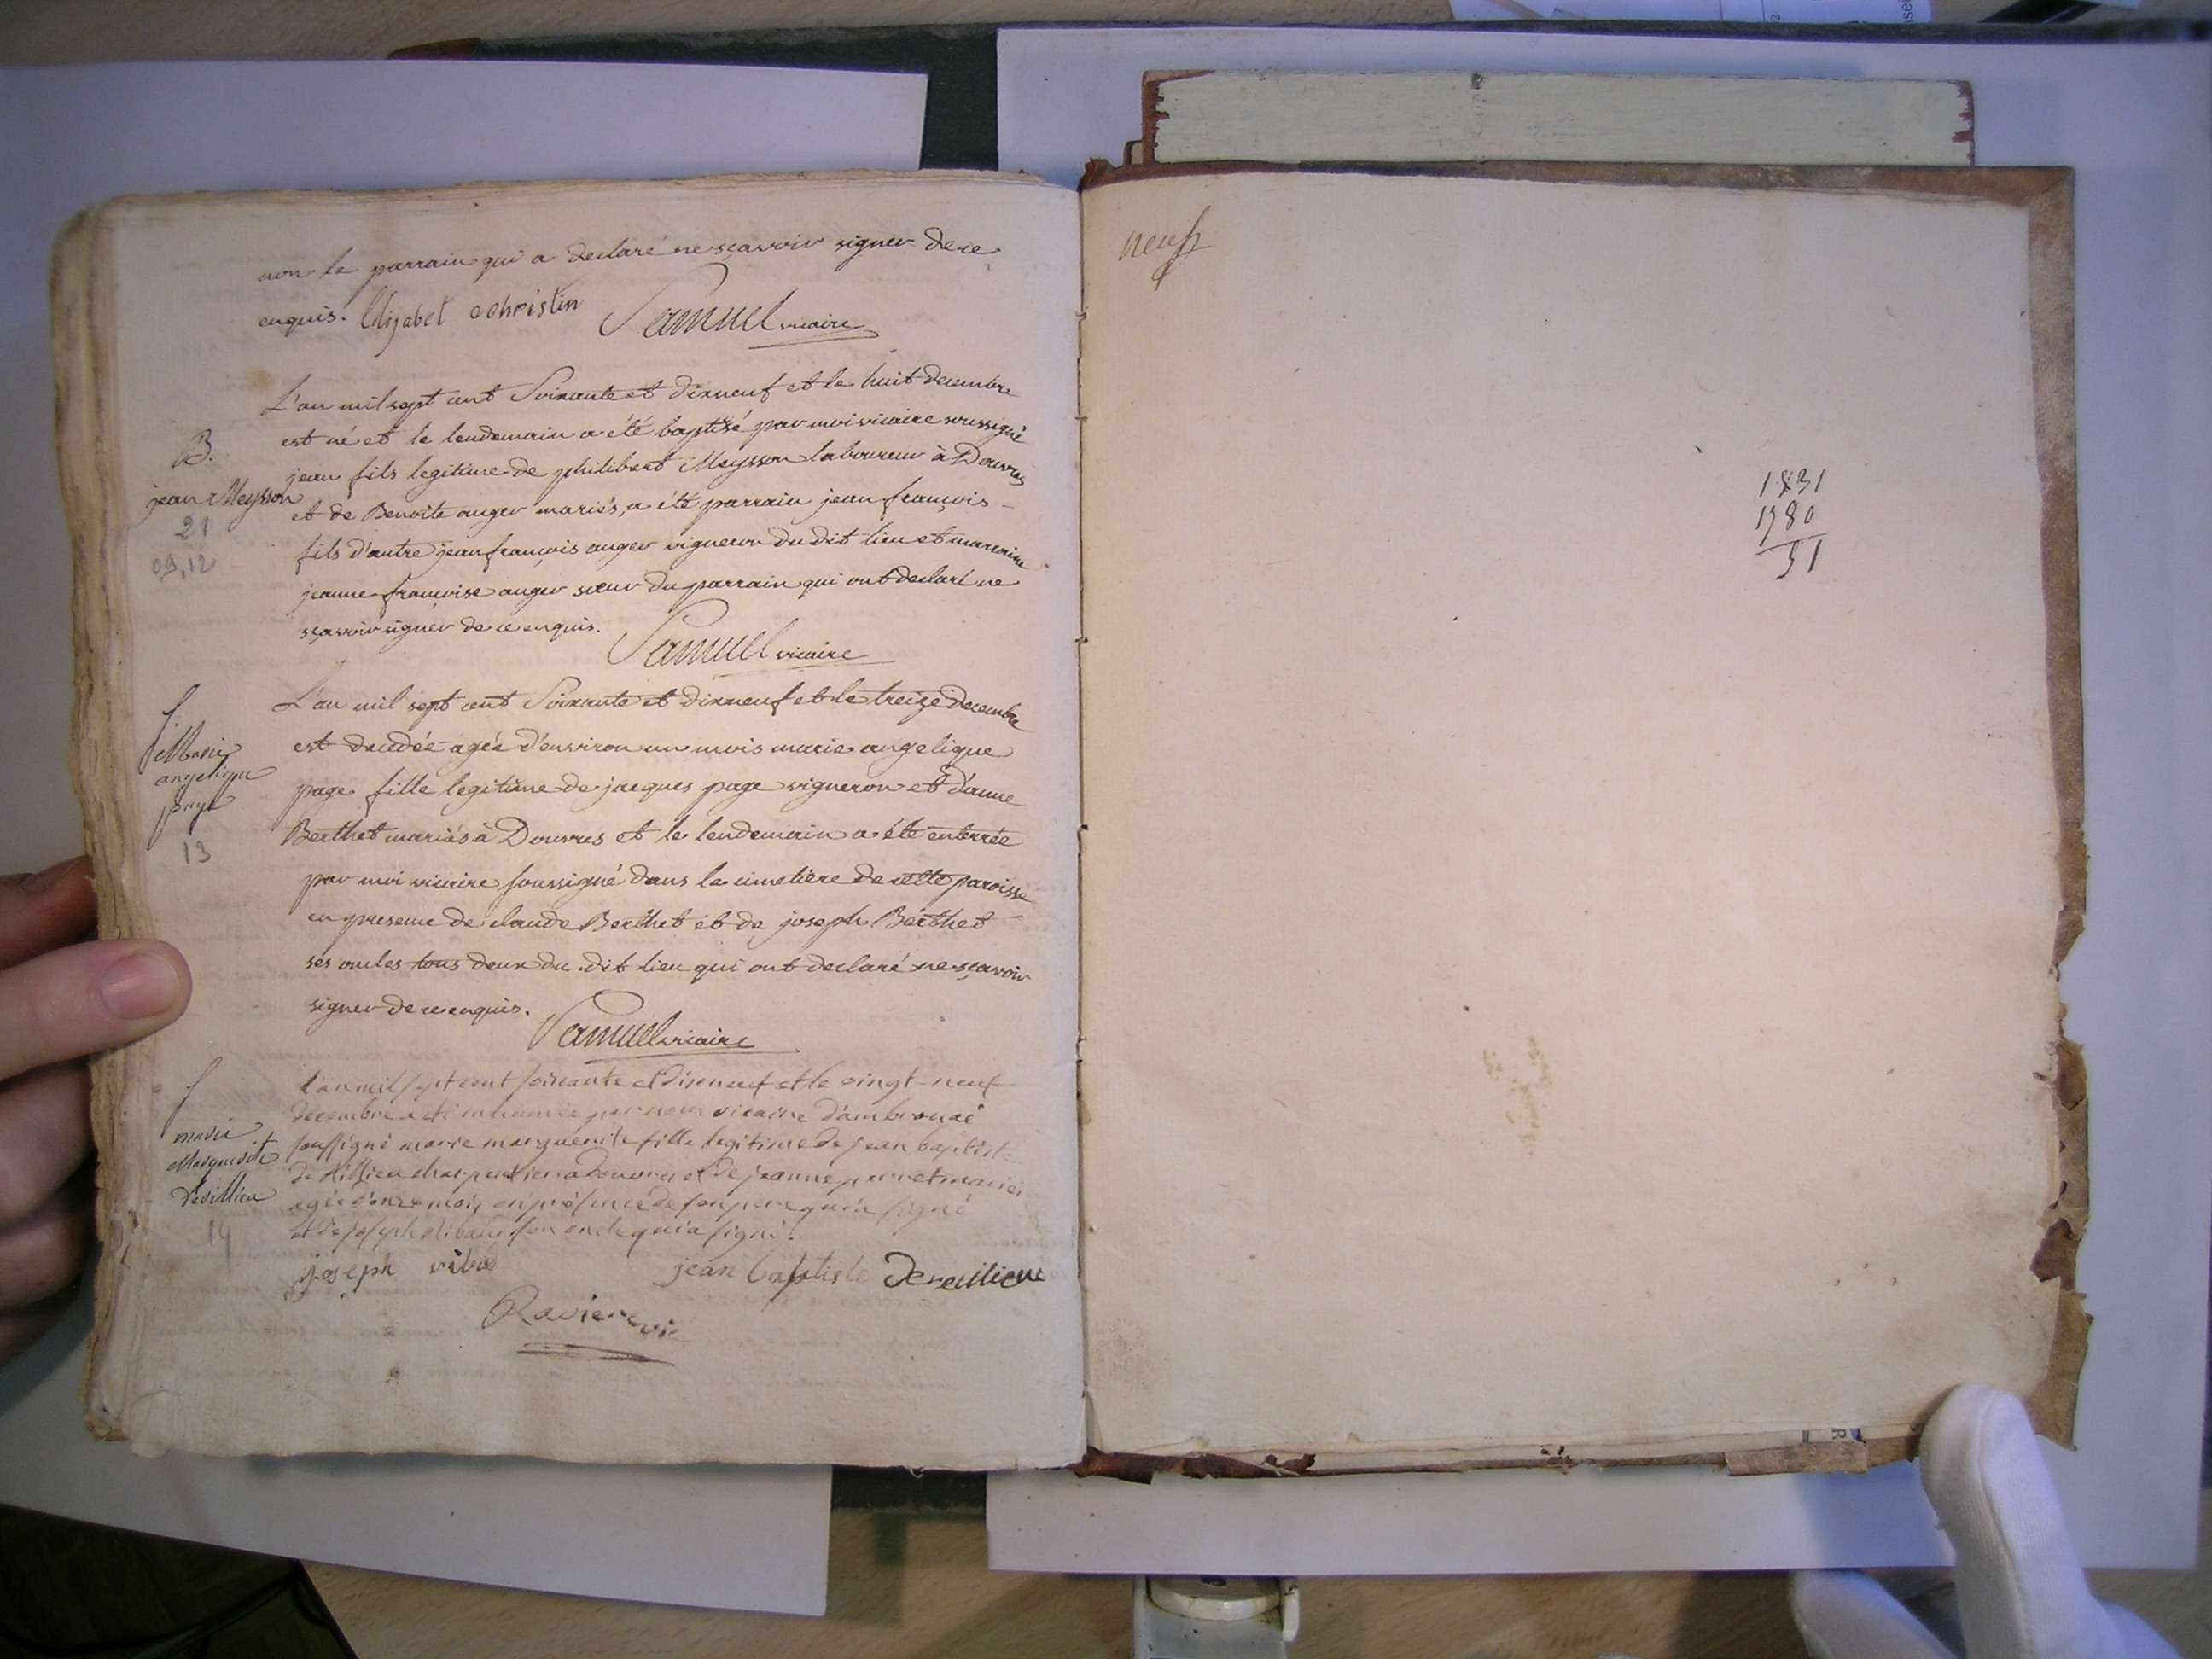 non le parrain qui a declaré ne sçavoir signer de ce
enquis. Elizabet Christin Samuel vicaire
B.
jean Meysson
21
09,12
L'an mil sept cent Soixante et dixneuf et le huit decembre
est né et le lendemain a été baptisé par moi vicaire soussigné
jean fils legitime de philibert Meysson laboureur à Douvres
et de Benoite auger mariés, a été parrain jean françois
fils d'autre jean françois auger vigneron du dit lieu et marraine
jeanne françoise auger sœur du parrain qui ont declaré ne
sçavoir signer de ce enquis.
Samuel vicaire
Marie
angelique
page
13
L'an mil sept cent Soixante et dixneuf et le treize decembre
est decedée agée d'environ un mois marie angelique
page fille legitime de jacques page vigneron et d'anne
Berthet mariés à Douvres et le lendemain a été enterrée
par moi vicaire soussigné dans le cimetière de cette paroisse
en presence de claude Berthet et de joseph Berthet
ses oncles tous deux du dit lieu qui ont declaré ne sçavoir
signer de ce enquis.
Samuel vicaire
marie
Marguerite
Devillieu
14
L'an mil sept cent soixante et dixneuf et le vingt-neuf
decembre a été inhumée par nous vicaire d'ambronai
soussigné marie marguerite fille legitime de jean baptiste
de villieu charpentier a douvres et de jeanne perret mariés
agée d'onze mois en présence de son pere qui a signé
et de joseph son oncle qui a signé.
joseph jean baptiste Devillieu
Raviere vic
neuf
1831
1780
51